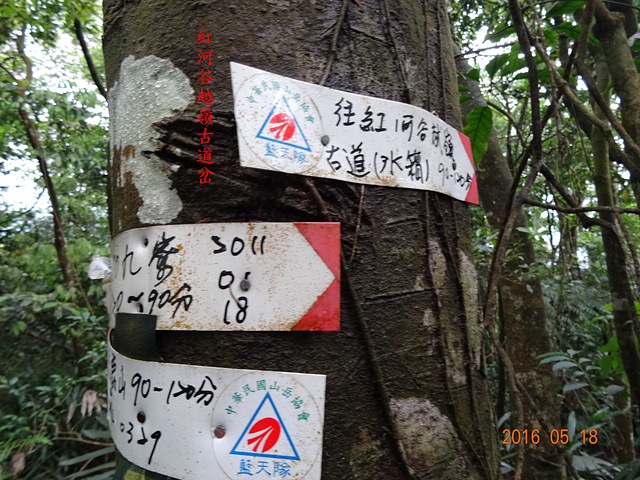 紅河谷越嶺古道岔
中華民國山岳協會
藍天隊
往紅河谷越嶺
古道(水箱) 90-120分
九寮
0~90分
2011
01
18
山90-120分
0329
中華民國山岳協會
藍天隊
2016 05 18